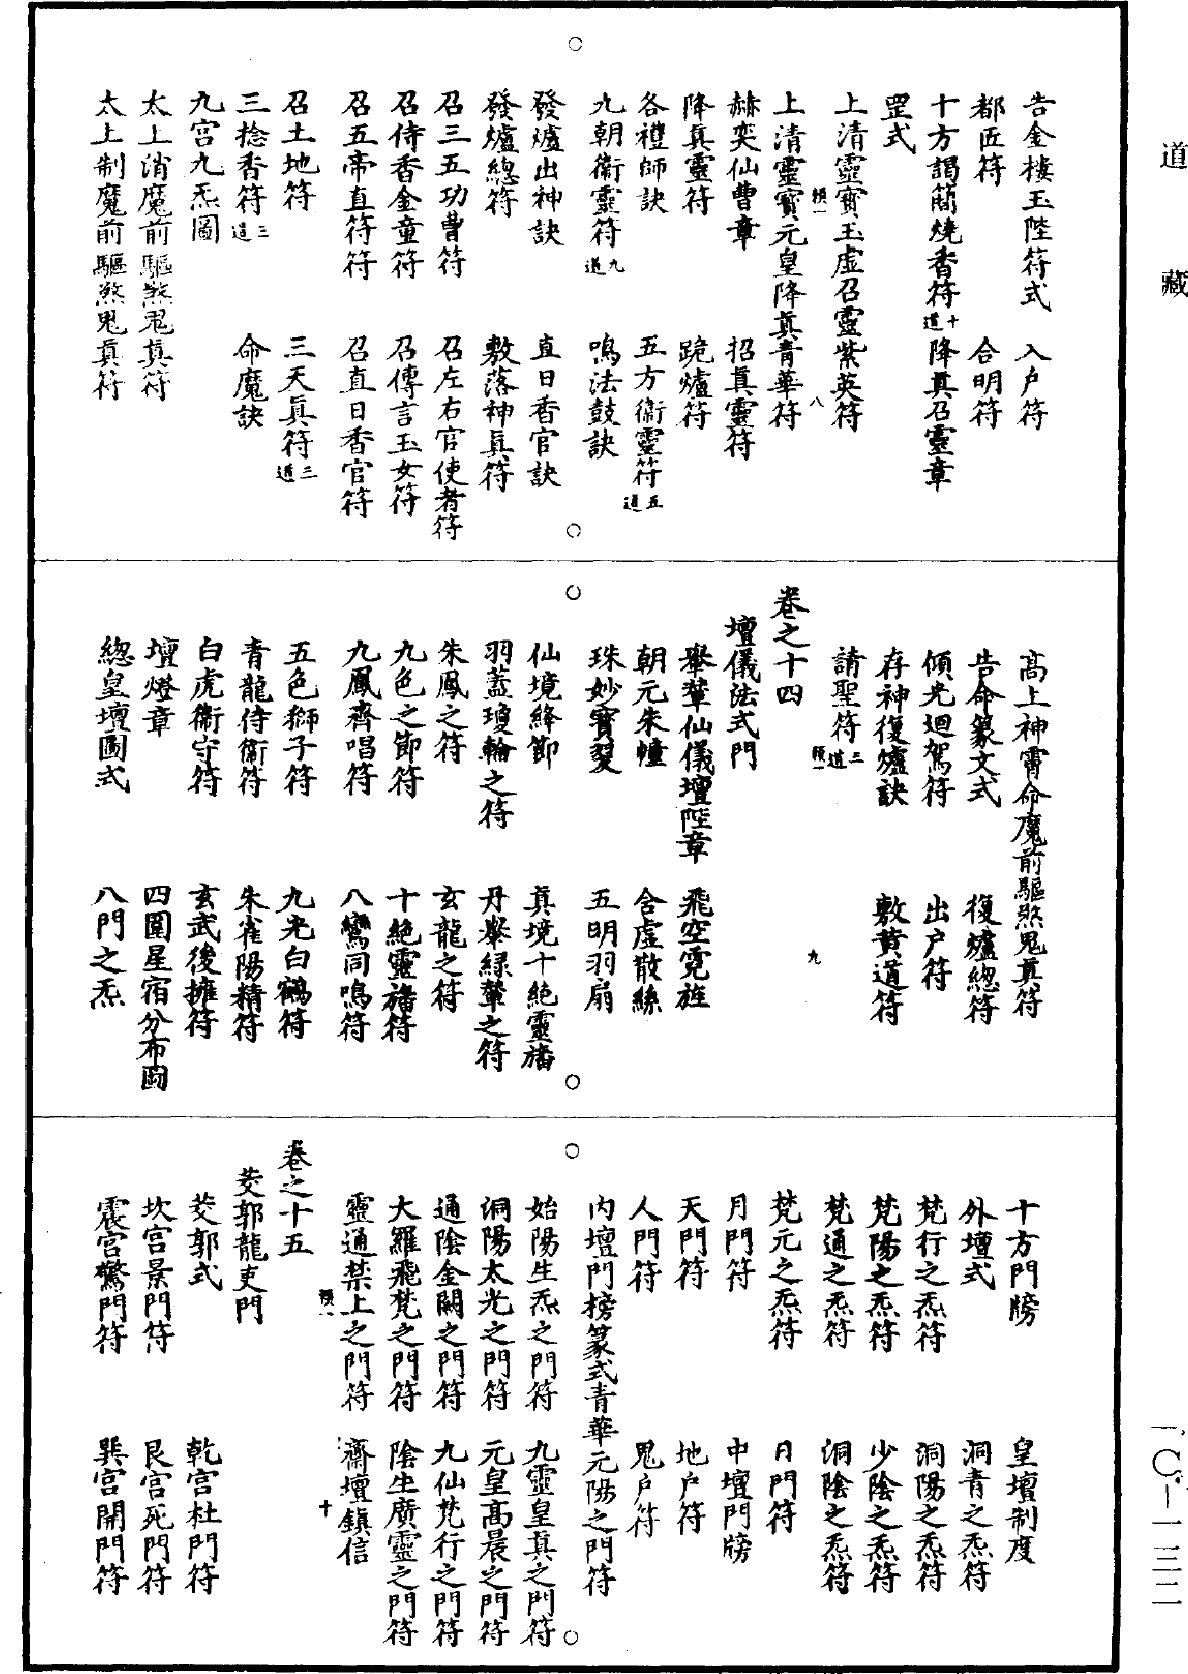 道藏
告金樓玉陛符式　入户符
都匠符　合明符
十方謁簡燒香符十道　降真召靈章
罡式
上清靈寶玉虛召靈紫英符
類一　八
上清靈寶元皇降真青華符
赫奕仙曹章　招真靈符
降真靈符　跪爐符
各禮師訣　五方衞靈符五道
九朝衞靈符九道　鳴法鼓訣
發爐出神訣　直日香官訣
發爐總符　敷落神真符
召三五功曹符　召左右官使者符
召侍香金童符　召傳言玉女符
召五帝直符符　召直日香官符
召土地符　三天真符三道
三捻香符三道　命魔訣
九宫九炁圖
太上消魔前驅煞鬼真符
太上制魔前驅煞鬼真符
高上神霄命魔前驅煞鬼真符
告命篆文式　復爐總符
傾光迴駕符　出户符
存神復爐訣　敷黄道符
請聖符三道
類一　九
卷之十四
壇儀法式門
舉輦仙儀壇陛章　飛空霓旌
朝元朱幢　含虛散絲
珠妙寶翣　五明羽扇
仙境絳節　真境十絶靈旛
羽蓋瓊輪之符　丹轝緑輦之符
朱鳳之符　玄龍之符
九色之節符　十絶靈旛符
九鳳齊唱符　八鸞同鳴符
五色獅子符　九光白鶴符
青龍侍衞符　朱雀陽精符
白虎衞守符　玄武後擁符
壇燈章　四圍星宿分布圖
總皇壇圖式　八門之炁
十方門牓　皇壇制度
外壇式　洞青之炁符
梵行之炁符　洞陽之炁符
梵陽之炁符　少陰之炁符
梵通之炁符　洞陰之炁符
梵元之炁符　日門符
月門符　中壇門牓
天門符　地户符
人門符　鬼户符
内壇門榜篆式青華元陽之門符
始陽生炁之門符　九靈皇真之門符
洞陽太光之門符　元皇高晨之門符
通陰金闕之門符　九仙梵行之門符
大羅飛梵之門符　陰生廣靈之門符
靈通禁上之門符　齋壇鎮信
類一　十
卷之十五
茭郭龍吏門
茭郭式　乾宫杜門符
坎宫景門符　艮宫死門符
震宫驚門符　巽宫開門符
一〇－一三二